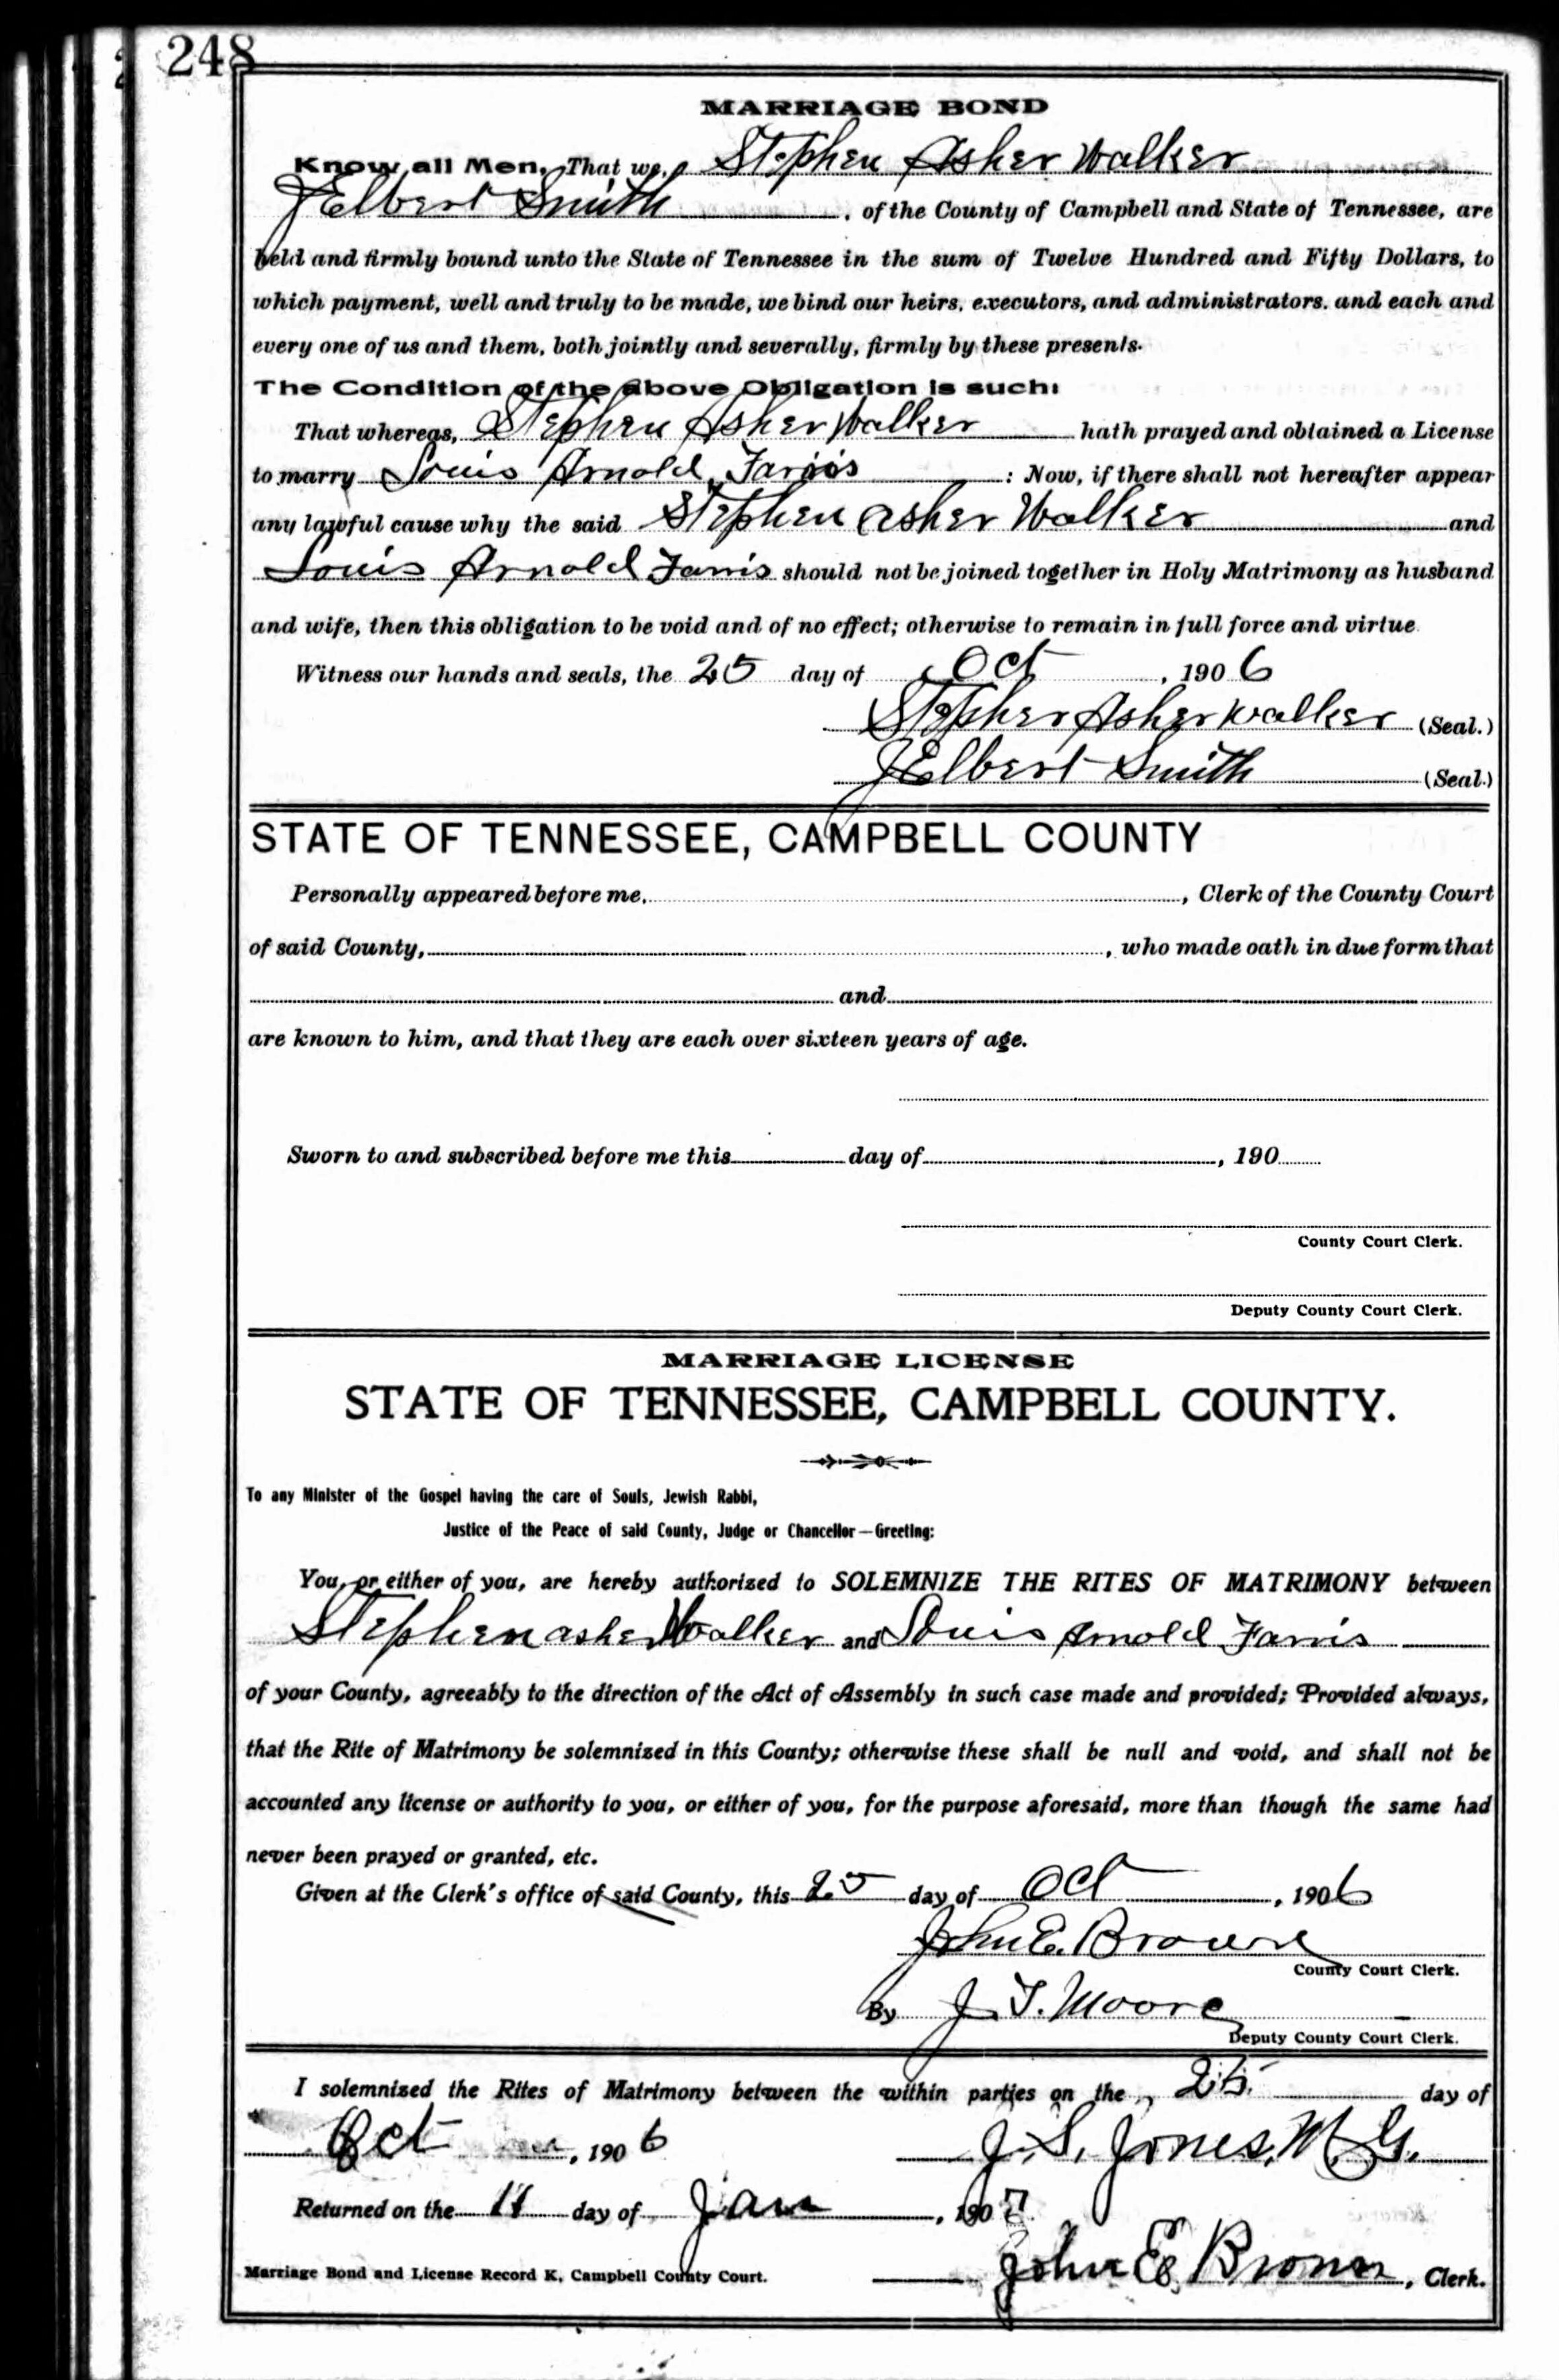 248
MARRIAGE BOND
Know all Men, That we, Stephen Asher Walker
J Elbert Smith, of the County of Campbell and State of Tennessee, are
held and firmly bound unto the State of Tennessee in the sum of Twelve Hundred and Fifty Dollars, to
which payment, well and truly to be made, we bind our heirs, executors, and administrators, and each and
every one of us and them, both jointly and severally, firmly by these presents.
The Condition of the above Obligation is such:
That whereas, Stephen Asher Walker hath prayed and obtained a License
to marry Louis Arnold Farris : Now, if there shall not hereafter appear
any lawful cause why the said Stephen Asher Walker and
Louis Arnold Farris should not be joined together in Holy Matrimony as husband
and wife, then this obligation to be void and of no effect; otherwise to remain in full force and virtue.
Witness our hands and seals, the 25 day of Oct, 1906
Stepher Asher Walker (Seal.)
J Elbert Smith (Seal.)
STATE OF TENNESSEE, CAMPBELL COUNTY
Personally appeared before me, , Clerk of the County Court
of said County, , who made oath in due form that
and
are known to him, and that they are each over sixteen years of age.
Sworn to and subscribed before me this day of , 190
County Court Clerk.
Deputy County Court Clerk.
MARRIAGE LICENSE
STATE OF TENNESSEE, CAMPBELL COUNTY.
To any Minister of the Gospel having the care of Souls, Jewish Rabbi,
Justice of the Peace of said County, Judge or Chancellor—Greeting:
You, or either of you, are hereby authorized to SOLEMNIZE THE RITES OF MATRIMONY between
Stephen asher Walker and Louis Arnold Farris
of your County, agreeably to the direction of the Act of Assembly in such case made and provided; Provided always,
that the Rite of Matrimony be solemnized in this County; otherwise these shall be null and void, and shall not be
accounted any license or authority to you, or either of you, for the purpose aforesaid, more than though the same had
never been prayed or granted, etc.
Given at the Clerk's office of said County, this 25 day of Oct, 1906
John E. Brown
County Court Clerk.
By J. T. Moore
Deputy County Court Clerk.
I solemnized the Rites of Matrimony between the within parties on the 25 day of
Oct, 1906 J. S. Jones, M. G.
Returned on the 11 day of Jan, 1907
Marriage Bond and License Record K, Campbell County Court. John E. Brown, Clerk.